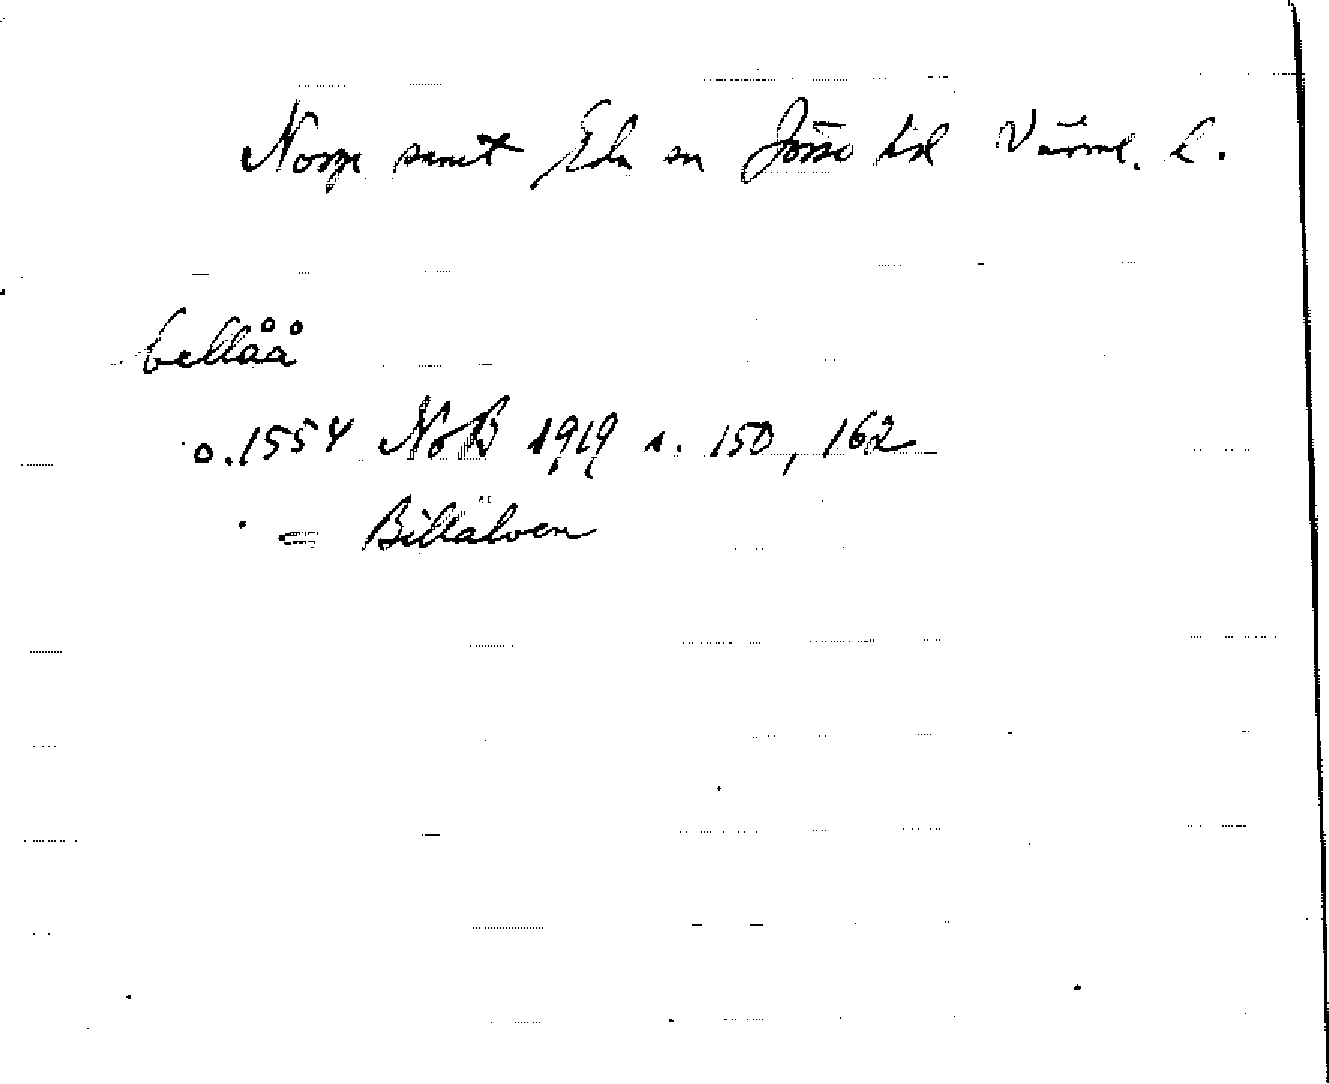 Norge samt Eda sn Jösse hd Värml. L.
bellåå
o. 1554 NoB 1919 s. 150, 162
= Billälven